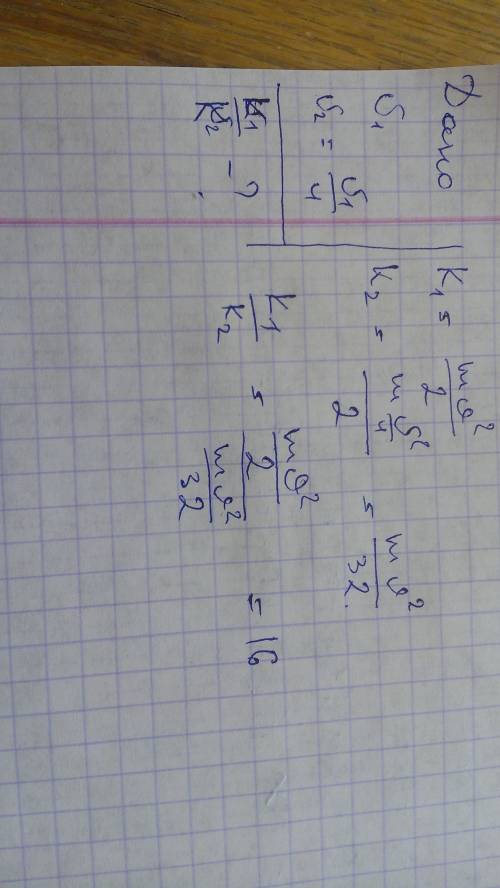 Дано
υ₁
υ₂ = υ₁/4
K₁/K₂ - ?
K₁ = mυ²/2
K₂ = m υ²/4 / 2 = mυ²/32.
K1/K₂ = mυ²/2 / mυ²/32 = 16